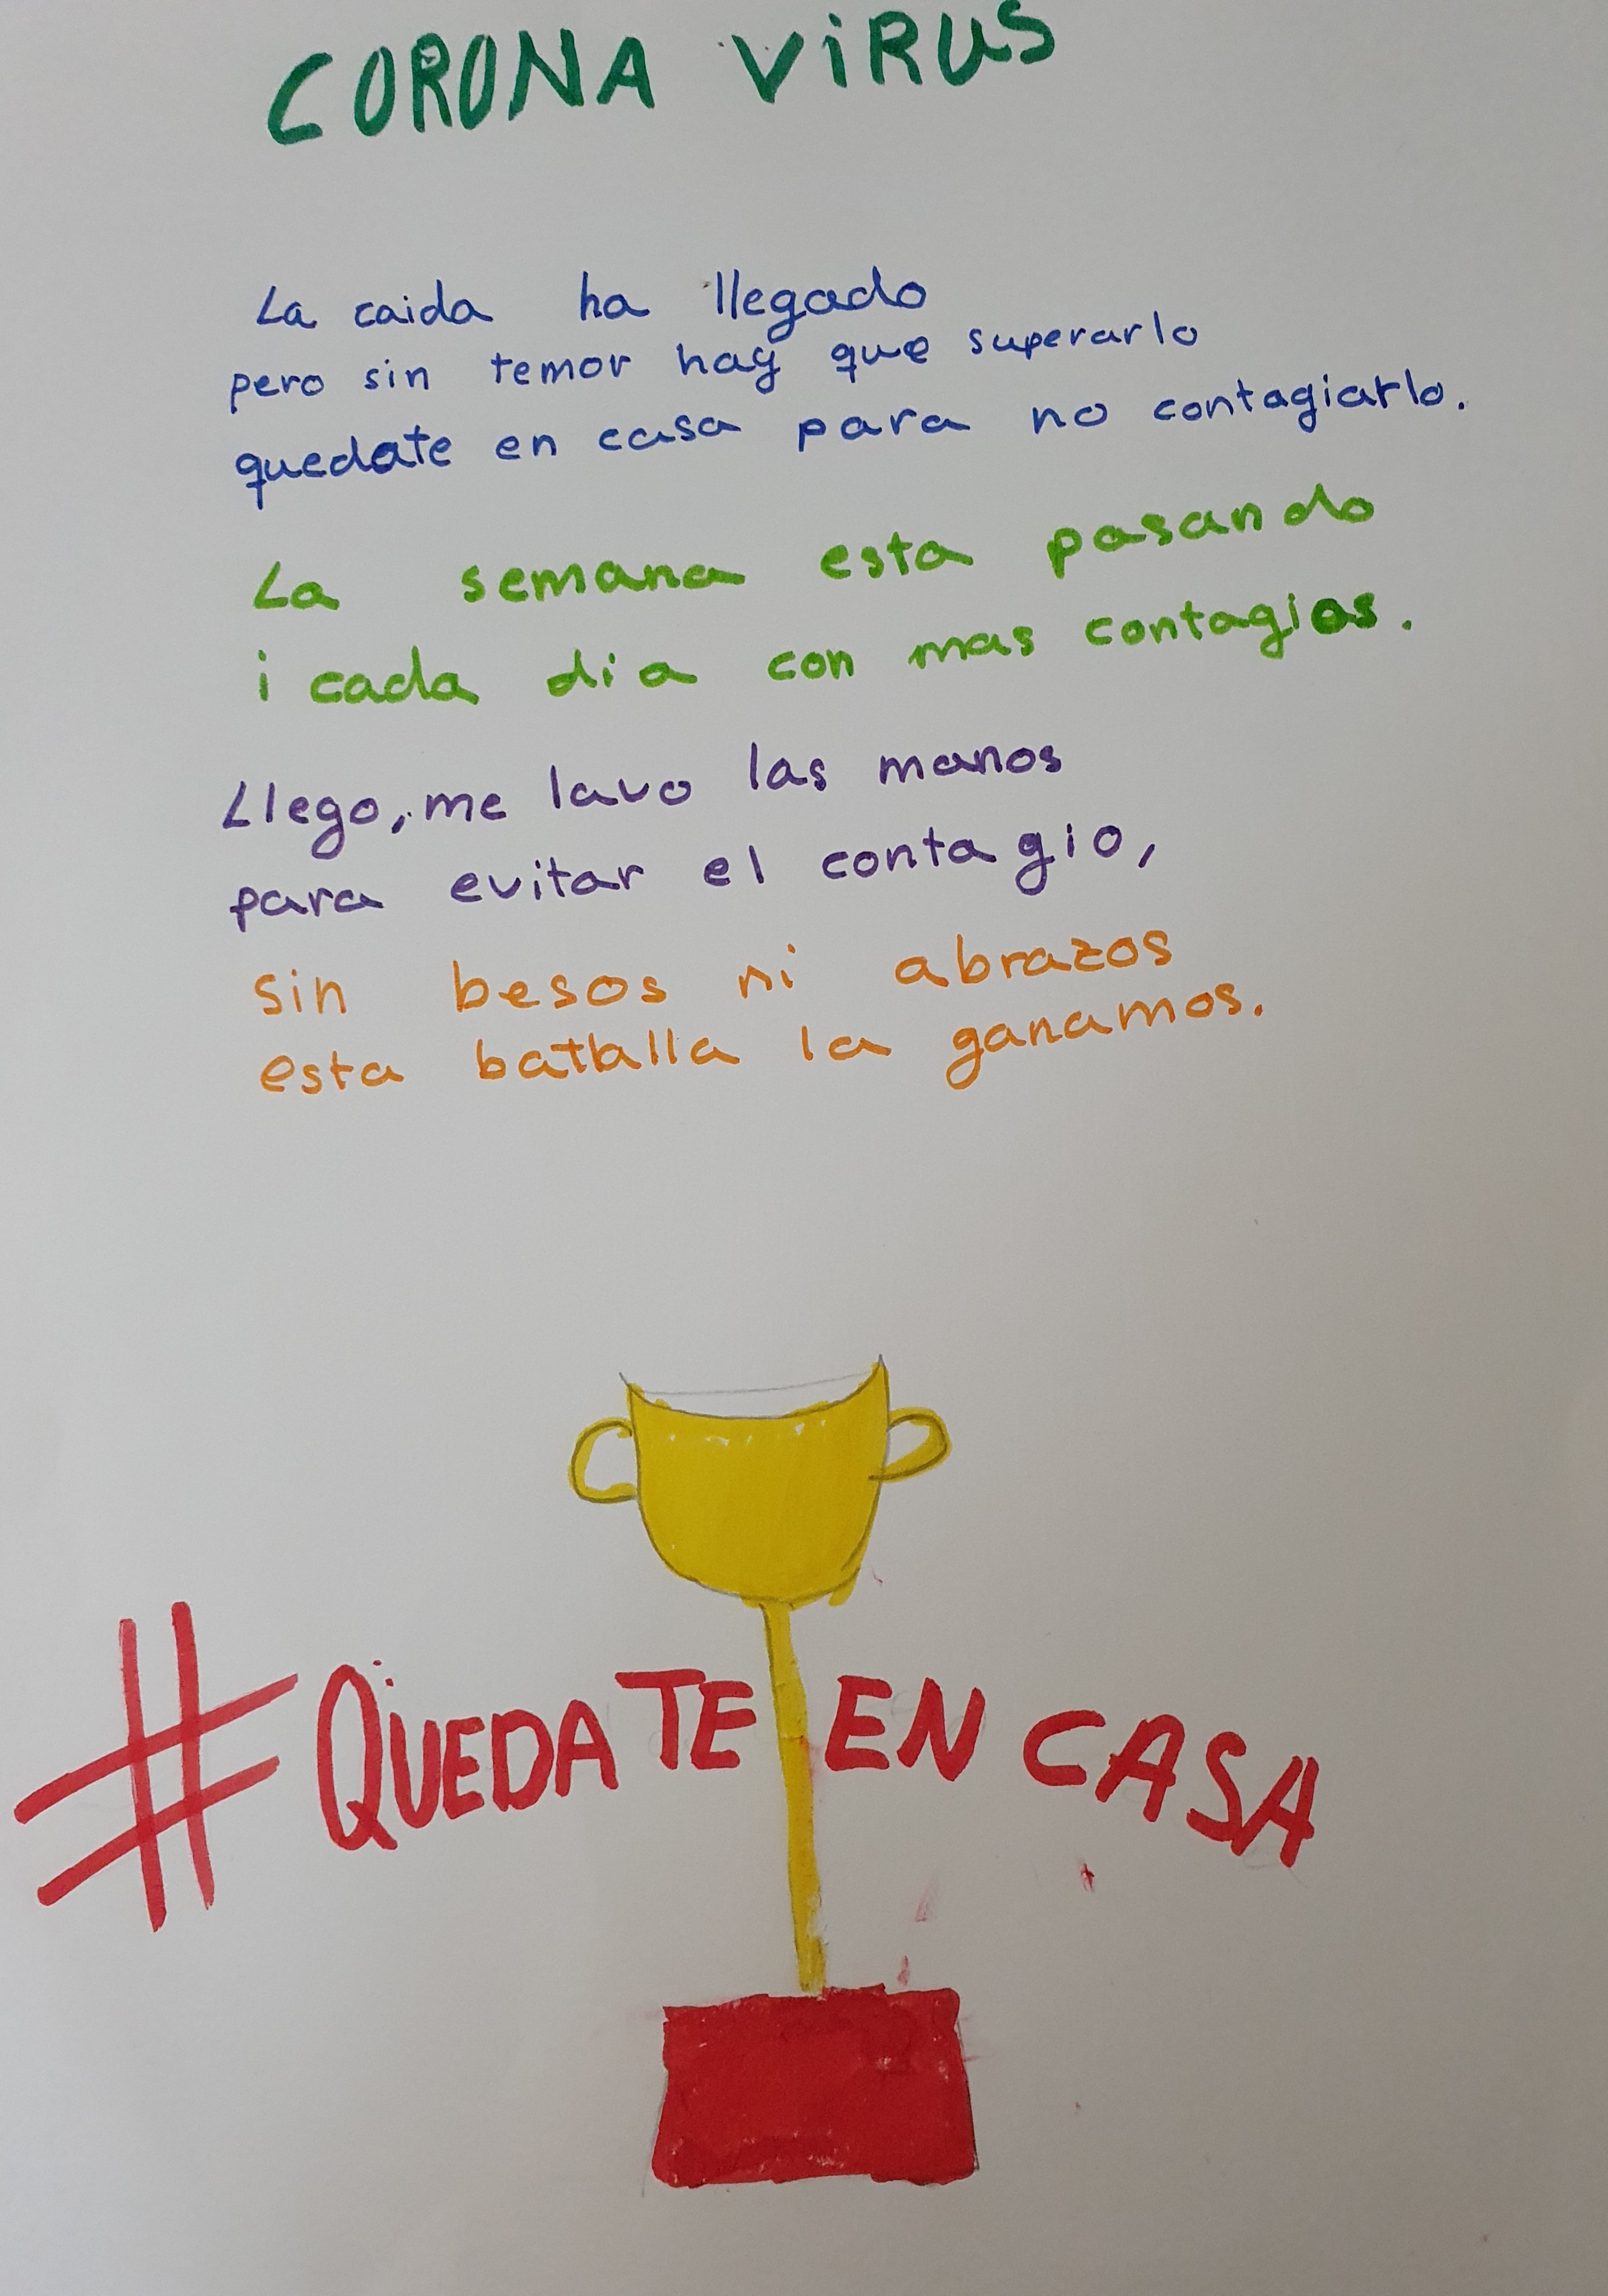 CORONA VIRUS
La caida ha llegado
pero sin temor hay que superarlo
quedate en casa para no contagiarlo.
La semana esta pasando
i cada dia con mas contagios.
Llego, me lavo las manos
para evitar el contagio,
sin besos ni abrazos
esta batalla la ganamos.
#QUEDATE EN CASA